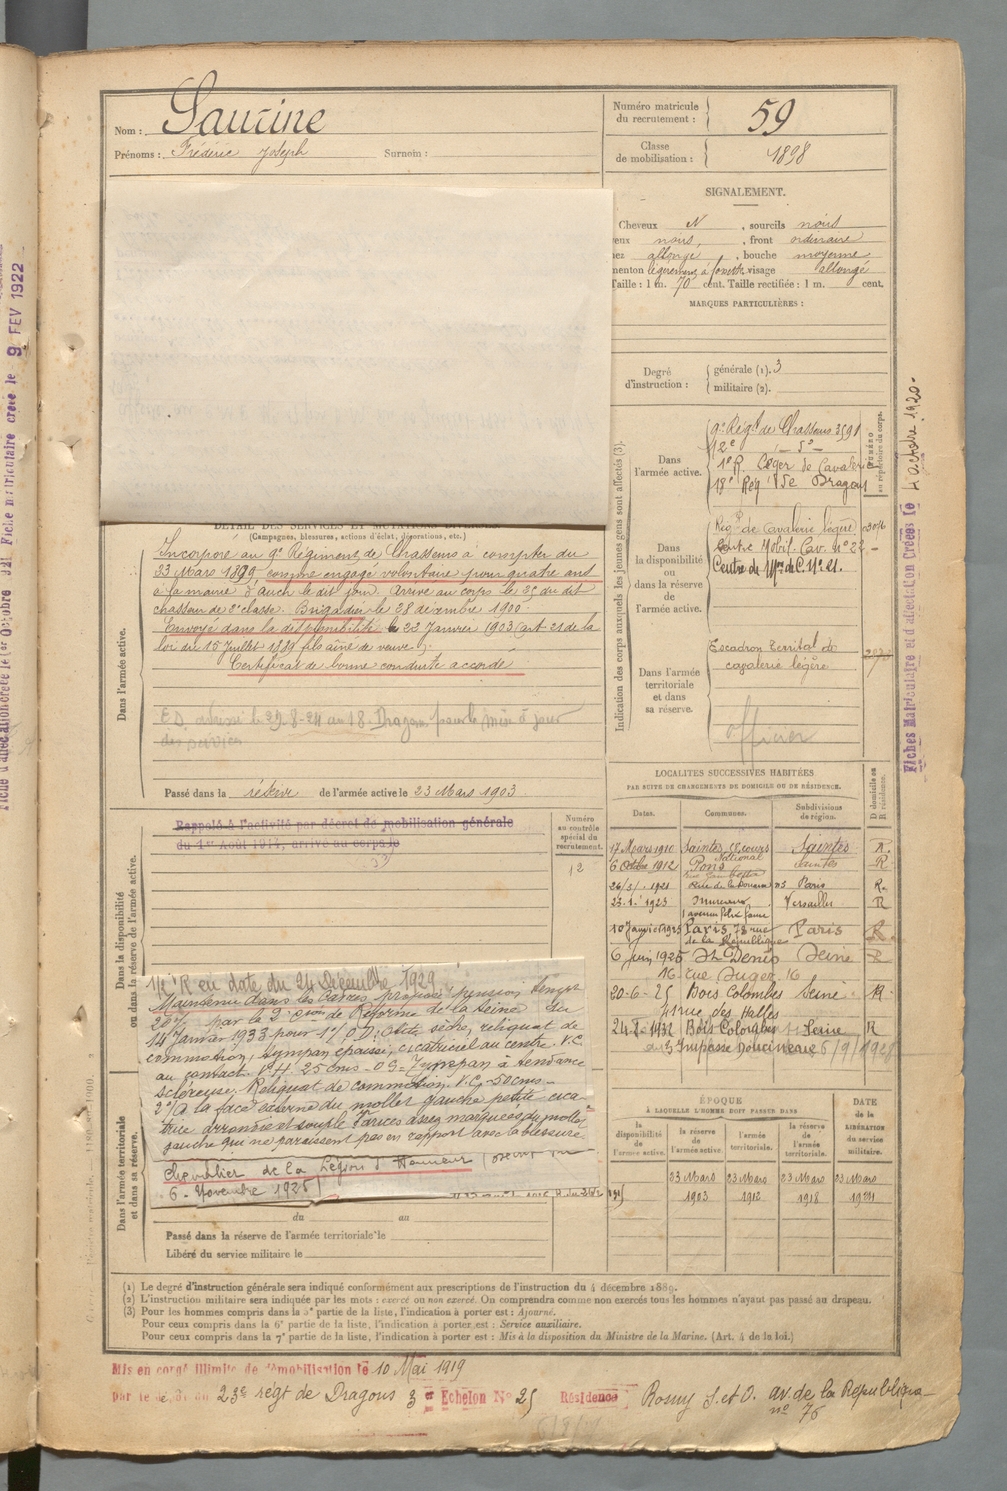 Nom : Saurine
Prénoms : Frédéric Joseph Surnom :
Numéro matricule du recrutement : 59
Classe de mobilisation : 1898
SIGNALEMENT.
Cheveux N, sourcils noirs
yeux noirs, front ordinaire
nez allongé, bouche moyenne
menton légèrement à fossette visage allongé
Taille : 1 m. 70 cent. Taille rectifiée : 1 m. cent.
MARQUES PARTICULIÈRES :
Degré d'instruction : générale (1). 3
militaire (2).
Indication des corps auxquels les jeunes gens sont affectés (3).
NUMÉRO au répertoire du corps.
Dans l'armée active.
9e Régt de Chasseurs 3591
12e — 5e —
1er R. Léger de Cavalerie
18e Rég de Dragons
Dans la disponibilité ou dans la réserve de l'armée active.
Rég de Cavalerie légère
Centre Mobil. Cav. No 22
Centre de de C. No 21.
Dans l'armée territoriale et dans sa réserve.
Escadron territal de
cavalerie légère
officier
DÉTAIL DES SERVICES ET MUTATIONS DIVERSES
(Campagnes, blessures, actions d'éclat, décorations, etc.)
Dans l'armée active.
Incorporé au 9e Régiment de Chasseurs à compter du
23 Mars 1899 comme engagé volontaire pour quatre ans
à la mairie d'Auch le dit jour. Arrivé au corps le 25 du dit
chasseur de 2e classe. Brigadier le 28 décembre 1900
Envoyé dans la disponibilité le 22 Janvier 1903 (art 21 de la
loi du 15 Juillet 1889 fils aîné de veuve).
Certificat de bonne conduite accordé
E.S. adressé le 29-8-24 au 18e Dragons pour la mise à jour
des services
Passé dans la réserve de l'armée active le 23 Mars 1903
Dans la disponibilité ou dans la réserve de l'armée active.
Numéro au contrôle spécial du recrutement.
12
Rappelé à l'activité par décret de mobilisation générale
du 1er Août 1914, arrivé au corps le
R en date du 24 Décembre 1929
Maintenu dans les cadres proposé pension temp
20% par la 2e Con de Réforme de la Seine du
14 Janvier 1933 pour 1°/ O.D : otite sèche, reliquat de
commotion, tympan épaissi, cicatriciel au centre. V.C.
au contact. V.H. 25 cms - O G = Tympan à tendance
scléreuse. Reliquat de commotion. V.C. 50 cms -
2°/ A la face externe du mollet gauche petite cica-
trice arrondie et souple. Varices assez marquées du mollet
gauche qui ne paraissent pas en rapport avec la blessure
Chevalier de la Légion d'Honneur
6 - Novembre 1925
Dans l'armée territoriale et dans sa réserve.
du au
Passé dans la réserve de l'armée territoriale le
Libéré du service militaire le
LOCALITÉS SUCCESSIVES HABITÉES
PAR SUITE DE CHANGEMENTS DE DOMICILE OU DE RÉSIDENCE.
Dates. Communes. Subdivisions de région. D domicile ou R résidence.
17 Mars 1910 Saintes, Cours National Saintes R.
6 Octbre 1912 Pons Saintes R
26/3/1921 Rue de la Douane no 5 Paris R.
23.1.1923 1 avenue Félix Faure Versailles R
10 Janvier 1925 Paris 78 rue de la République Paris R
6 Juin 1925 St Denis Seine R
16 rue Suger, 16
20-6-25 Bois Colombes Seine R
41 rue des Halles
1932 Bois Colombes Seine R
3 Impasse Doucineau 6/9/1928
ÉPOQUE
À LAQUELLE L'HOMME DOIT PASSER DANS
la disponibilité de l'armée active. la réserve de l'armée active. l'armée territoriale. la réserve de l'armée territoriale.
DATE de la LIBÉRATION du service militaire.
23 Mars 1903 23 Mars 1912 23 Mars 1918 23 Mars 1921
(1) Le degré d'instruction générale sera indiqué conformément aux prescriptions de l'instruction du 4 décembre 1889.
(2) L'instruction militaire sera indiquée par les mots : exercé ou non exercé. On comprendra comme non exercés tous les hommes n'ayant pas passé au drapeau.
(3) Pour les hommes compris dans la 5e partie de la liste, l'indication à porter est : Ajourné.
Pour ceux compris dans la 6e partie de la liste, l'indication à porter est : Service auxiliaire.
Pour ceux compris dans la 7e partie de la liste, l'indication à porter est : Mis à la disposition du Ministre de la Marine. (Art. 4 de la loi.)
Mis en congé illimité de démobilisation le 10 Mai 1919
par le 23e régt de Dragons 3e Echelon No 25 Résidence Rosny S. et O. av. de la République
no 76
Fiches Matriculaire et d'affectation Créées le 4 octobre 1920.
Fiche matriculaire créée le 9 FEV 1922